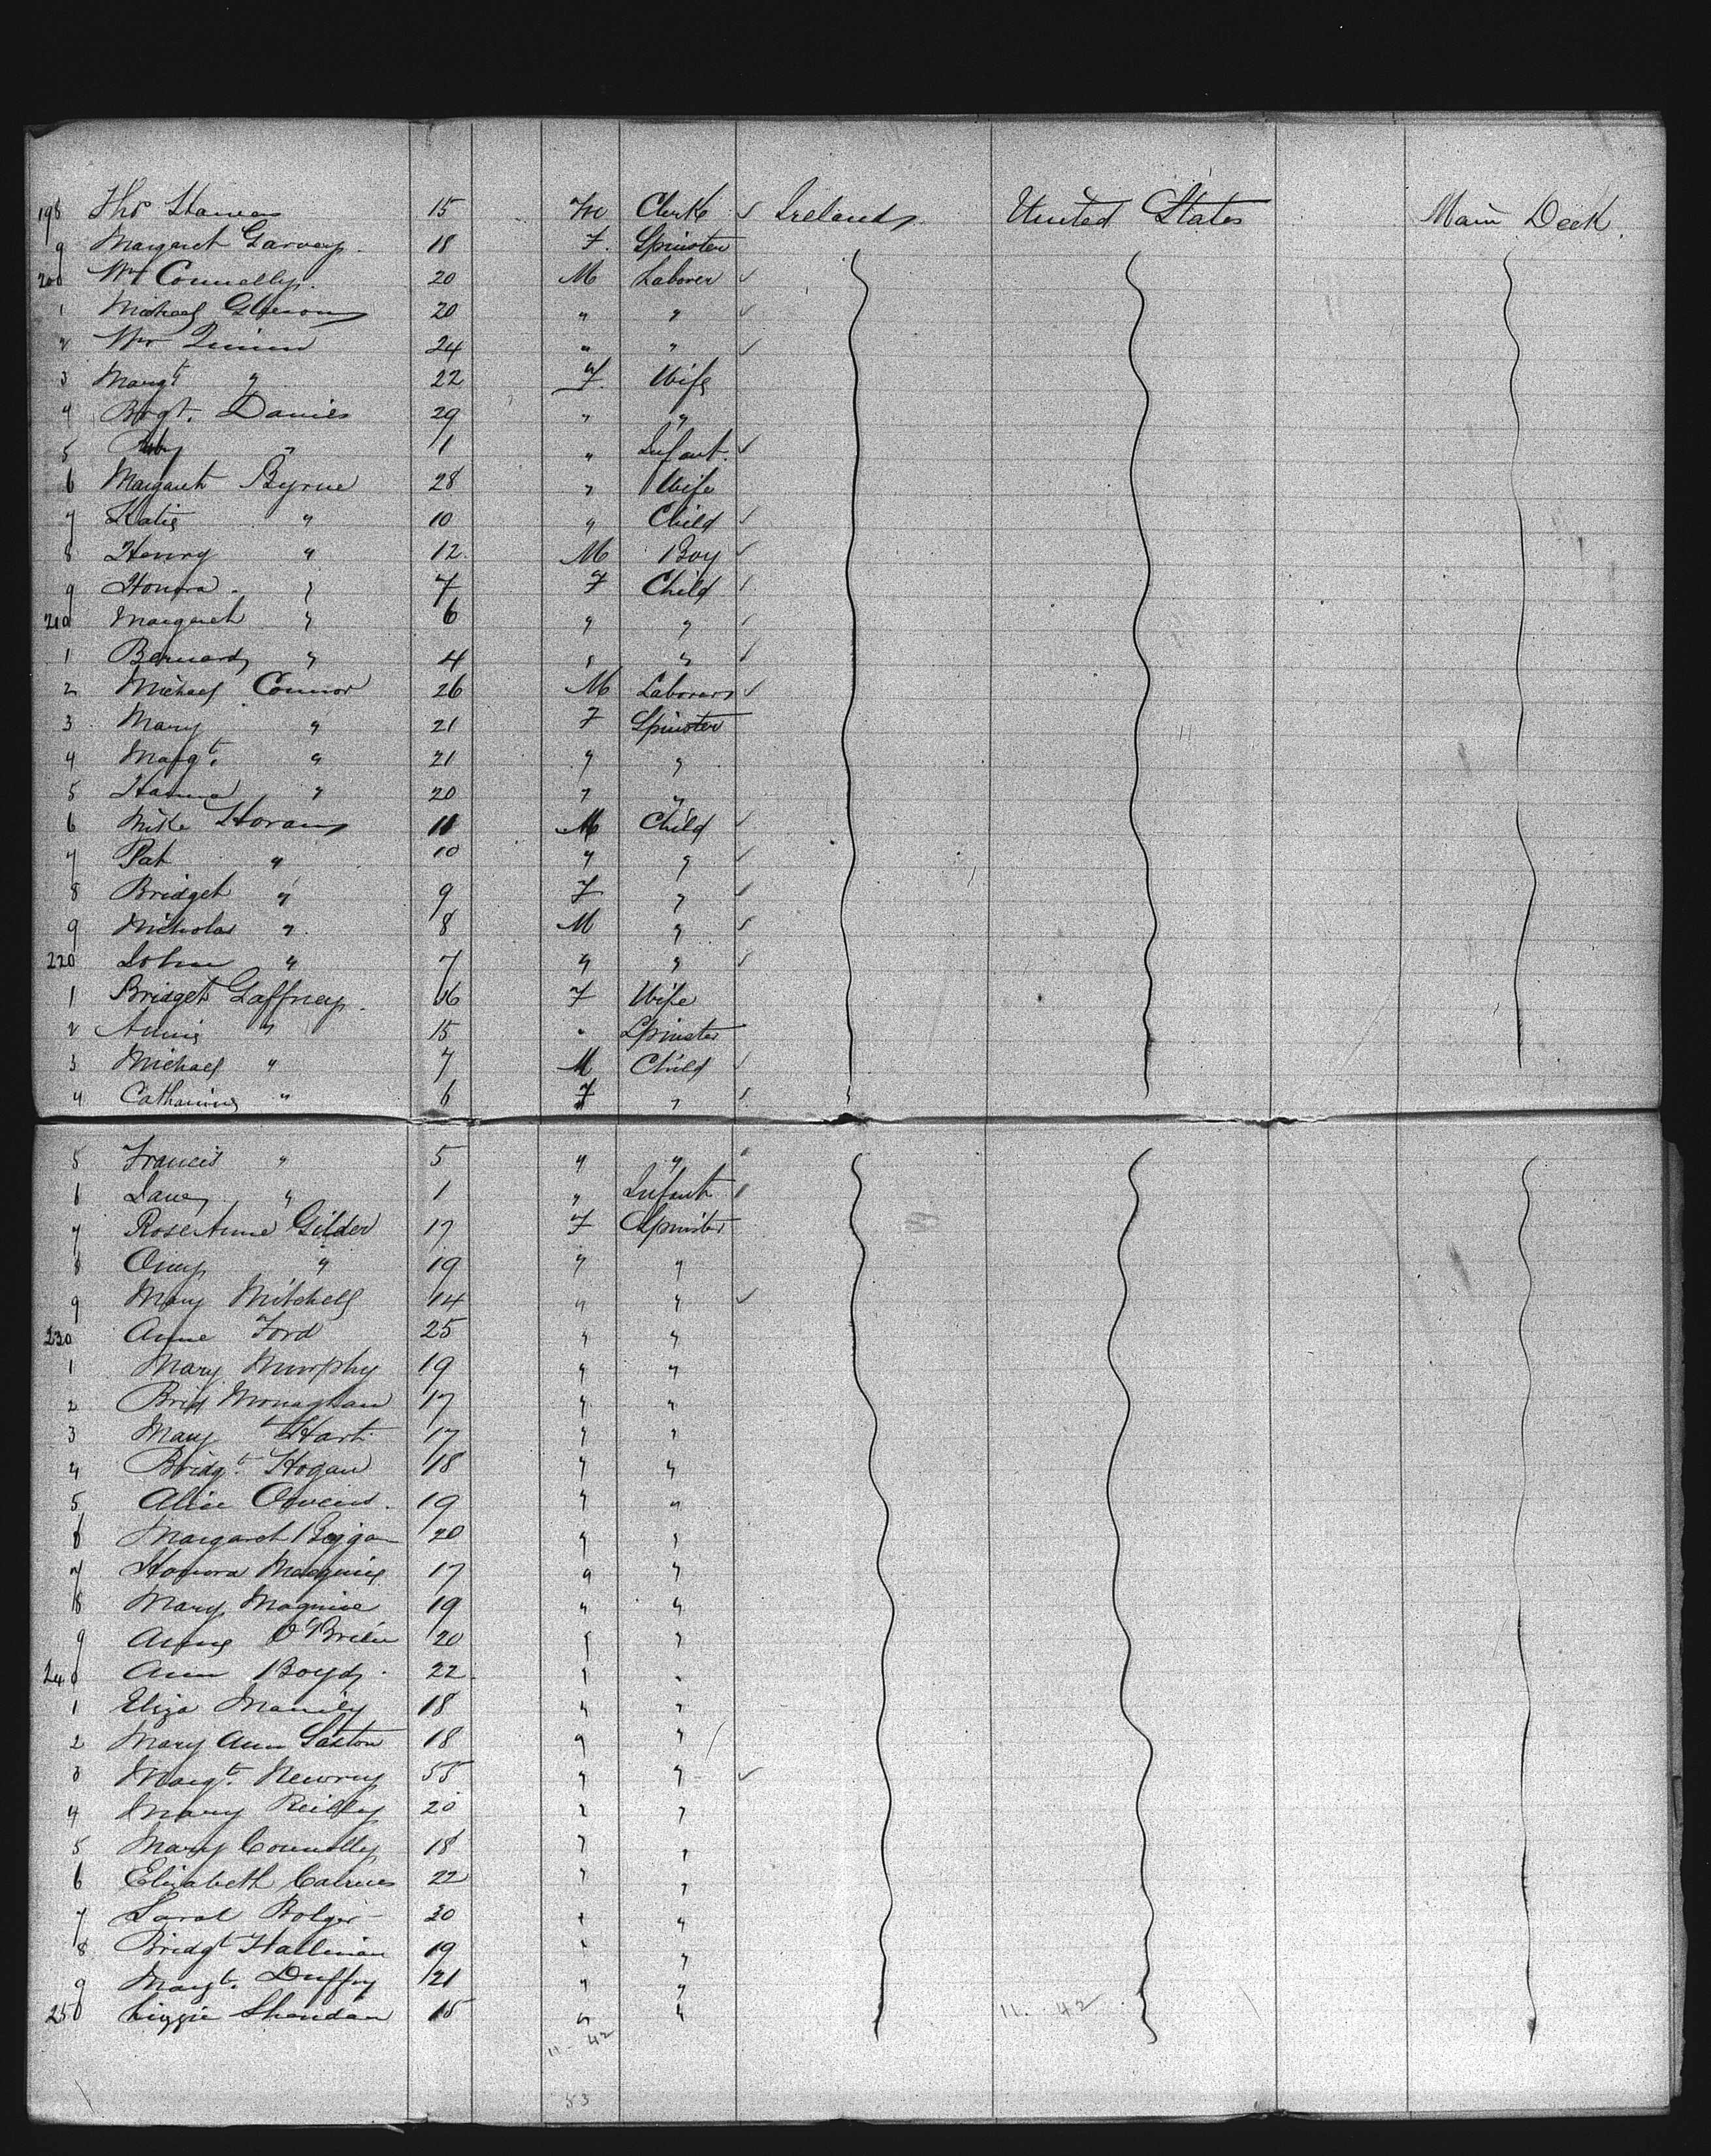 198 Thos 15 M Clerk ✓ Ireland United States Main Deck.
9 Margaret Garvey. 18 F. Spinster
200 Wm Connelly. 20 M Laborer ✓
1 Michael 20 " " ✓
2 Wm Quinn 24 " " ✓
3 Margt " 22 F. Wife
4 Brgt. Davies 29 " "
5 " 1 " Infant. ✓
6 Margaret Byrne 28 " Wife
7 Katie " 10 " Child ✓
8 Henry " 12. M Boy ✓
9 Honora. " 7 F Child ✓
210 Margaret " 6 " " ✓
1 Bernard " 4 " " ✓
2 Michael Connor 26 M Laborer ✓
3 Mary " 21 F Spinster
4 Margt. " 21 " "
5 Hanna " 20 " "
6 Mike Horan 11 M Child ✓
7 Pat " 10 " " ✓
8 Bridget " 9 F " ✓
9 Nicholas " 8 M " ✓
220 John " 7 " " ✓
1 Bridget Gaffney. F Wife
2 Annie " 15 " Spinster
3 Michael " 7 M Child ✓
4 Catharine " 6 F " ✓
5 Francis " 5 " "
6 " 1 " Infant
7 Rose Anne Gilder 17 F Spinster
8 " 19 " "
9 Mary Mitchell 14 " " ✓
230 Anne Ford 25 " "
1 Mary Murphy 19 " "
2 Brid Monaghan 17 " "
3 Mary Hart 17 " "
4 Bridgt. Hogan 18 " "
5 Alice Owens. 19 " "
6 Margaret Biggan 20 " "
7 Honora 17 " "
8 Mary Maguire 19 " "
9 Anne O'Brien 20 " "
240 Ann Boyd. 22 " "
1 Eliza 18 " "
2 Mary Ann Saxton 18 " "
3 Margt. Newry 55 " " ✓
4 Mary Reilly 20 " "
5 Mary Connolly 18 " "
6 Elizabeth Cairnes 22 " "
7 Sarah Bolger 30 " "
8 Bridgt Hallinan 19 " "
9 Margt. Duffy 21 " "
250 Lizzie Sheridan 15 " "
11 - 42 11 - 42
53